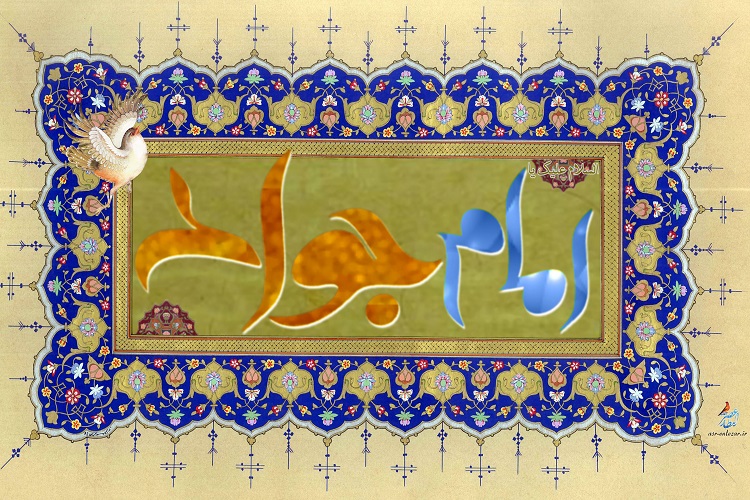 السلام علیک یا
امام جواد
asr-entezar.ir